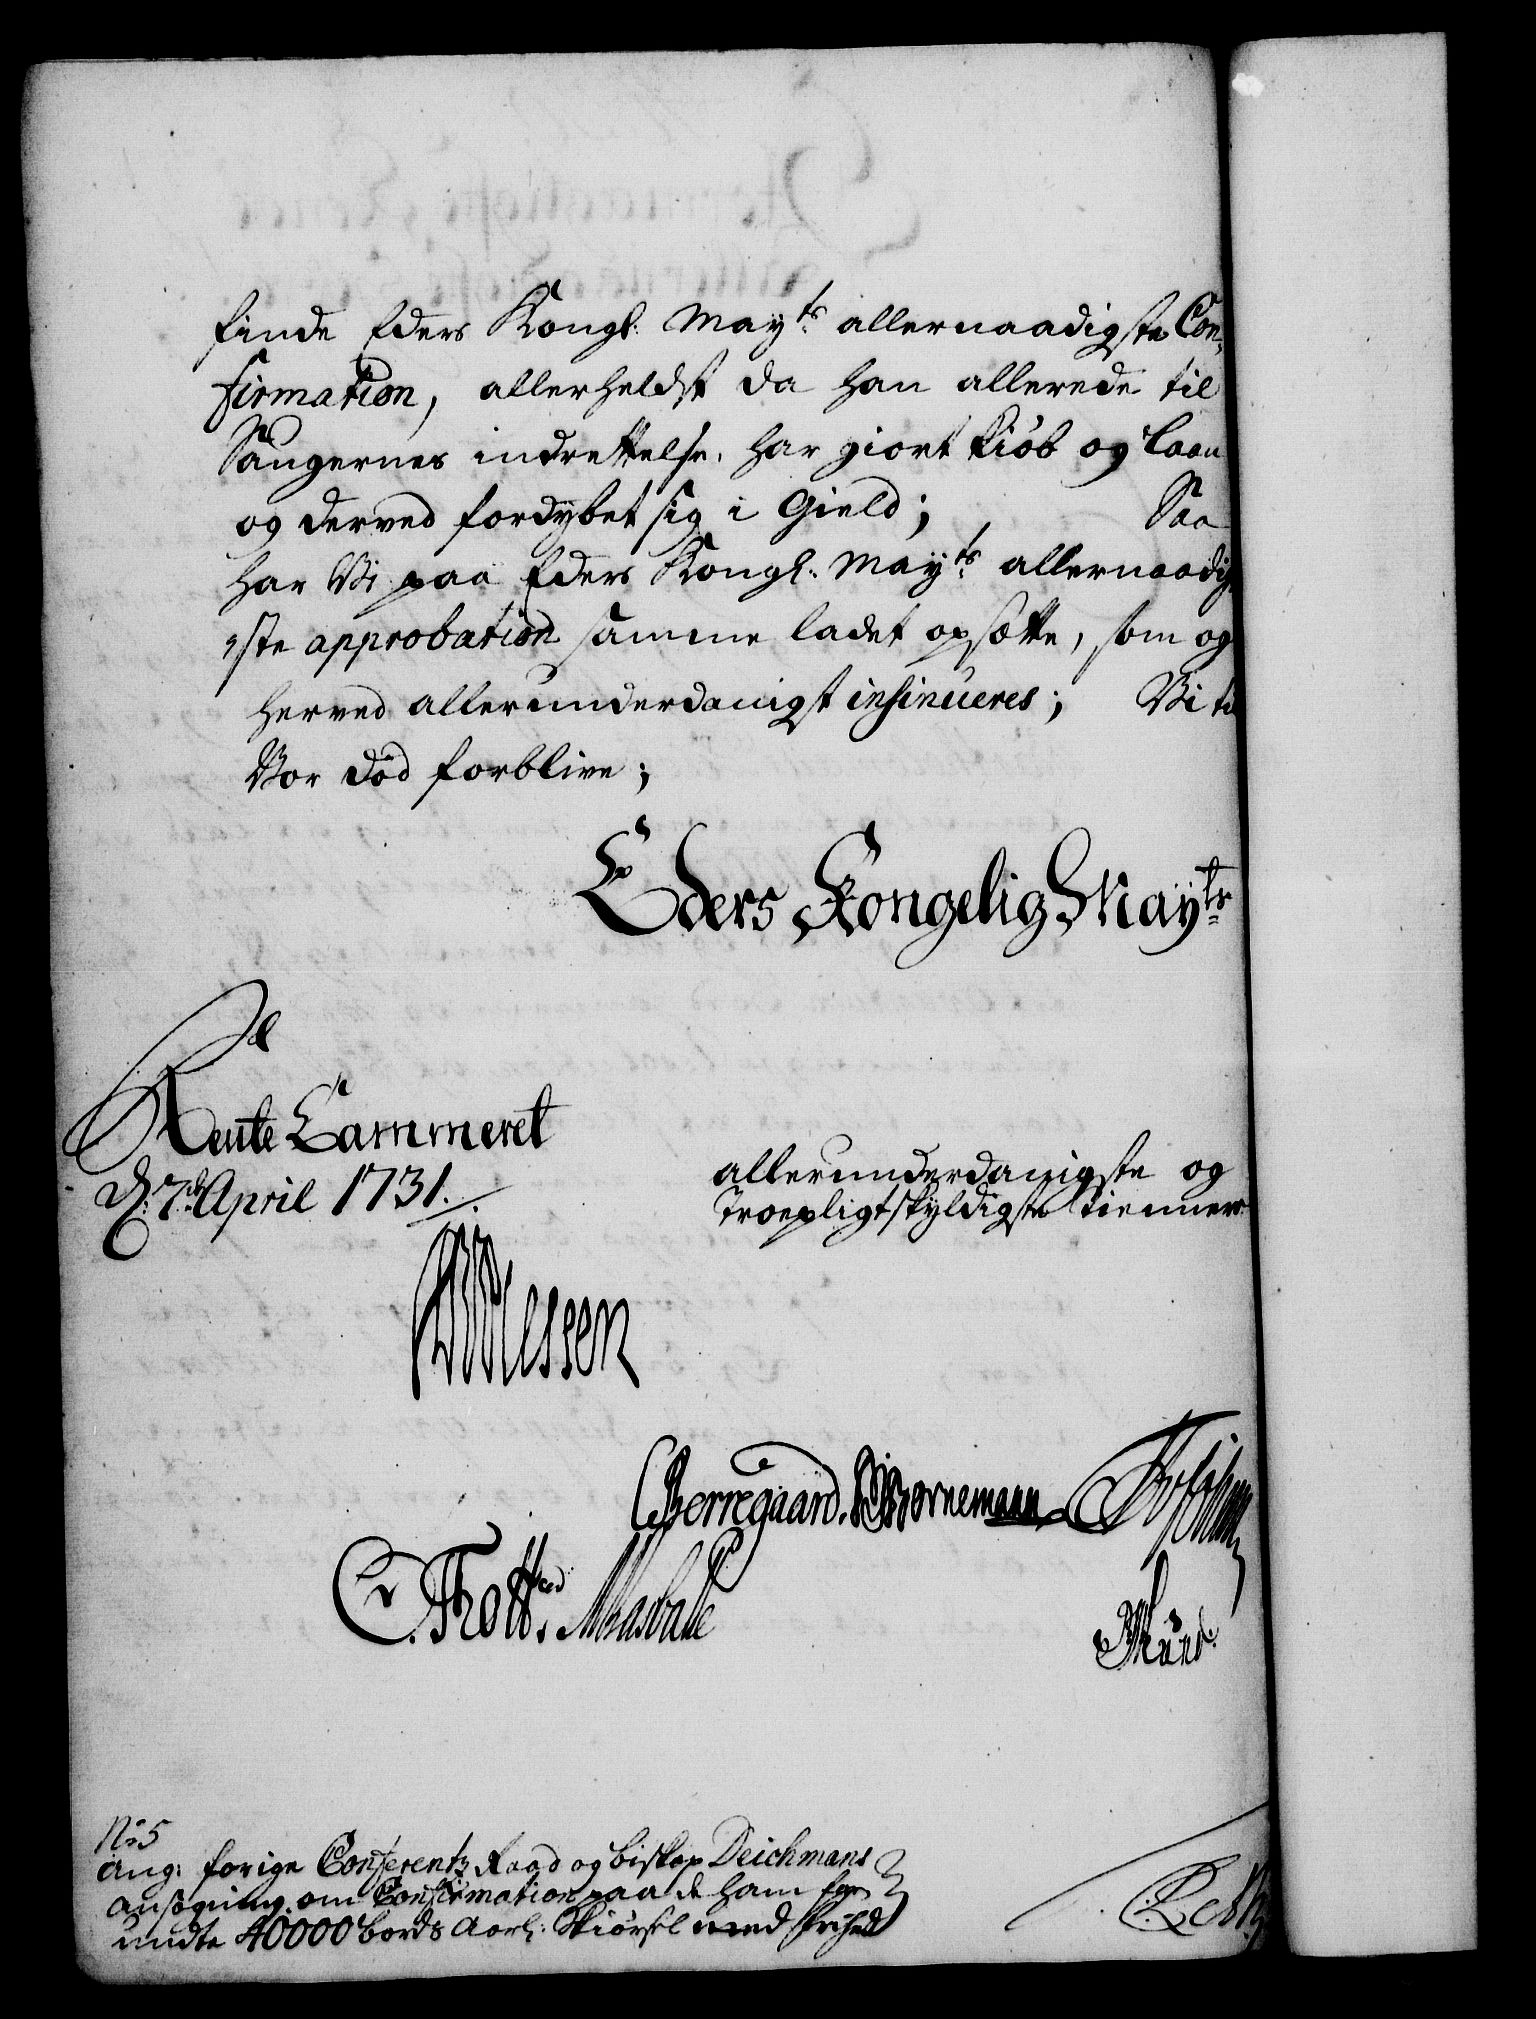 finde Eders Kongl: Mayts allernaadigste Con-
firmation, allerheldst da han allerede til
Saugernes indrettelse, har giort Kiøb og Laan
og derved fordybet sig i Gield; Saa
har Vi paa Eders Kongl: Mayts allernaadig
-ste approbation samme ladet opsætte, som og
herved allerunderdanigst insinueres; Vi til
Vor død forblive;
Eders Kongelig Mayts
Rente Cammeret
D: 7de April 1731.
allerunderdanigste og
Troepligtskyldigste tienner
Plessen
CBerregaard. Bornemann
C. Thott.
No 5
ang: forige Conferentz Raad og biskop Deichmans
ansøgning om Confirmation paa de ham for
undte 40000 bords Aarl: Skiørsel med frihed